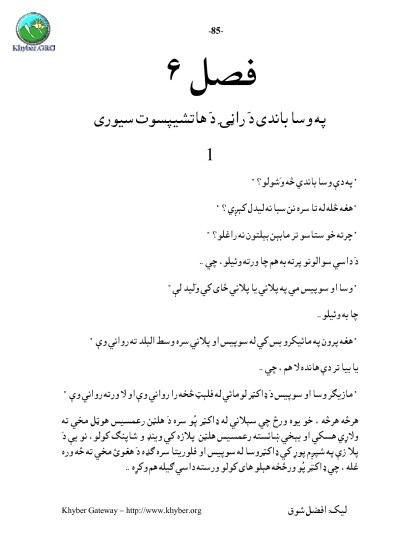 Khyber.ORG
-85-
فصل ۶
په وسا باندی دَ رانی۔ دَ هاتشیپسوت سیوری
1
"په دې وسا باندې څه وَ شولو؟"
"هغه ځله له تا سره نن سبا نه لیدل کېږي؟"
"چرته خو ستاسو تر مابېن بېلتون نه راغلو؟"
دَ داسې سوالونو پرته به هم چا ورته وئیلو، چې ..
"وسا او سوپیس مې په پلاني یا پلاني ځای کې وَلید لې"
چا به وئیلو..
"هغه پرون په مائیکرو بس کې له سوپیس او پلاني سره وسط البلد ته رواني وې"
یا بیا تر دې هاند ه لا هم، چې ..
"مازیگر وسا او سوپیس دَ ډاکټر لومائي له فلېټ څخه را رواني وې او لا ورته رواني وې"
هرڅه هرڅه، خو یوه ورځ چې سېلاني له ډاکټر پُو سره دَ هلټن رعمسیس هوټل مخې ته
ولاړې هسکې او بیخي ښائسته رعمسیس هلټن پلازه کې وینډو شاپنګ کولو، نو یې دَ
پلازې په شپږم پوړ کې ډاکټر وسا له سوپیس او فلوریتا سره ګډه دَ هغوئ مخې ته څه وره
غله، چې ډاکټر پُو ورڅخه هېلو های کولو ورسته داسې ګیله هم وکړه ..
Khyber Gateway – http://www.khyber.org
لیک: افضل شوق